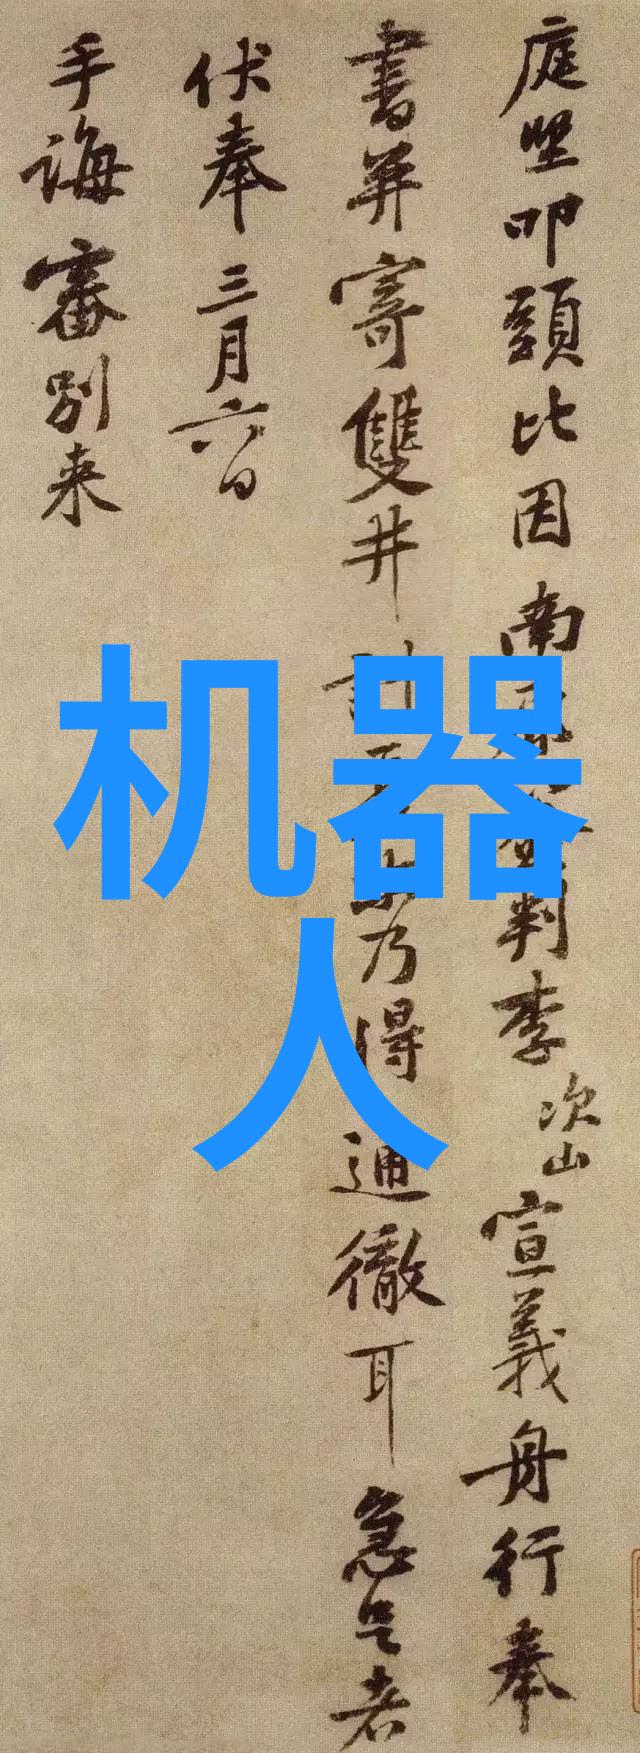 庭堅叩頭比因南康簽判李次山宣義舟行奉
書并寄雙井計乃得通徹耳急足者
伏奉三月六日
手誨審別来
机器
人